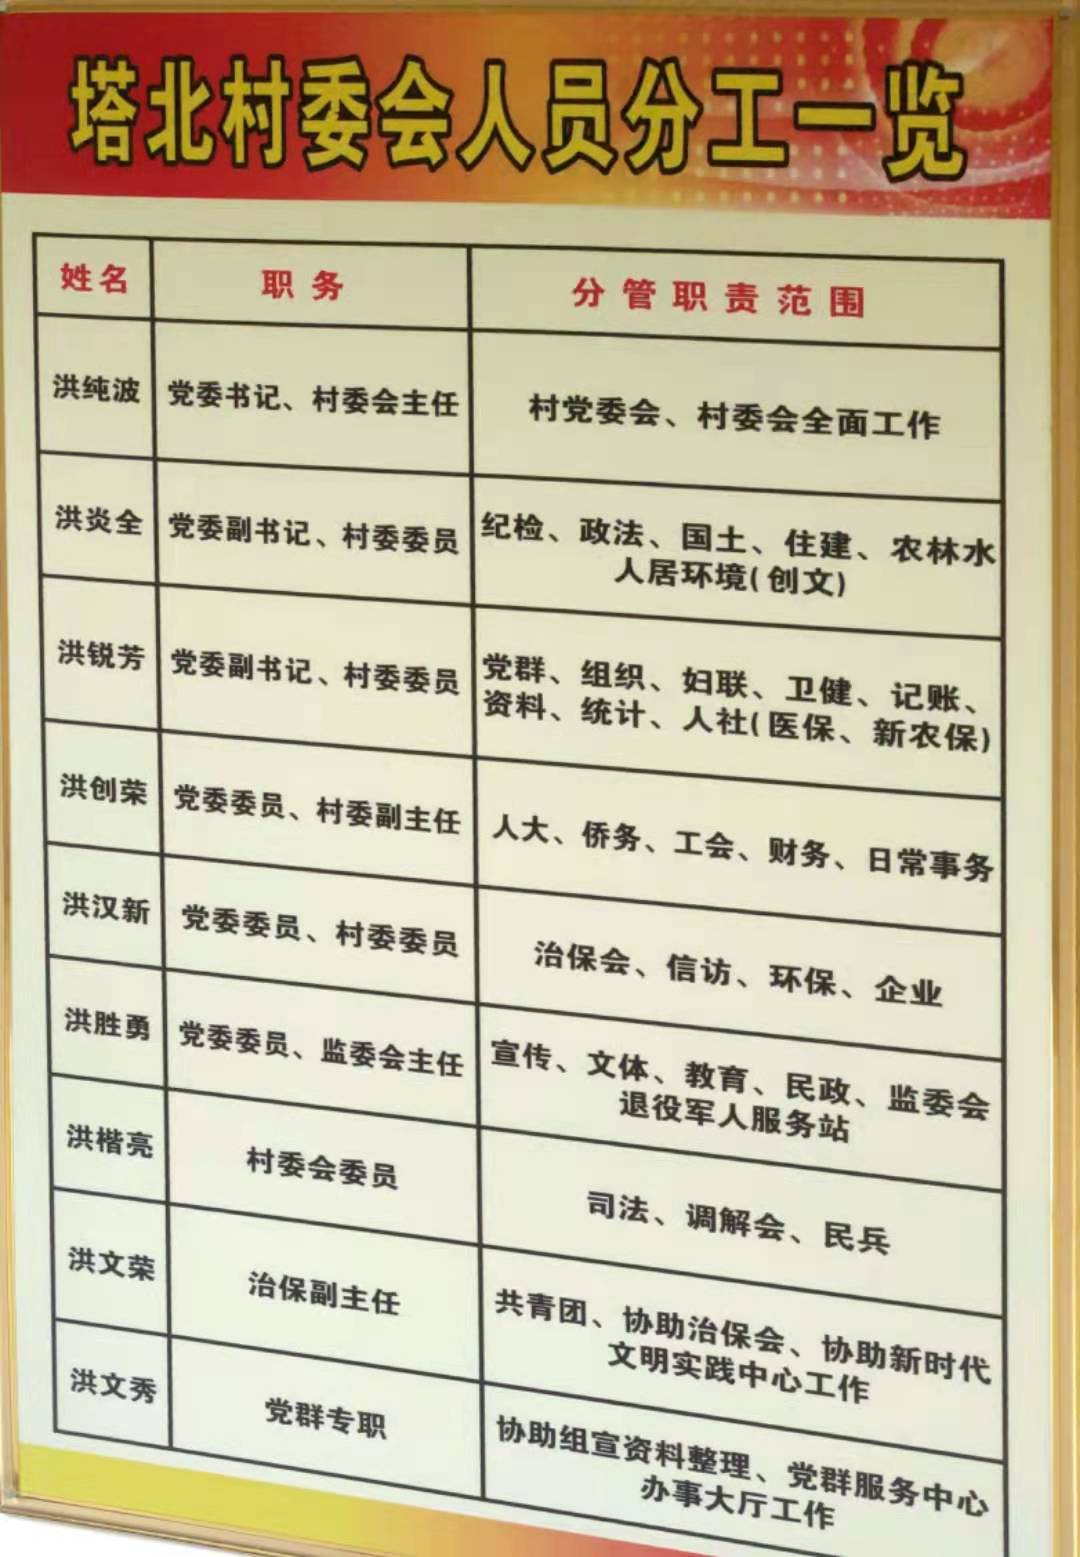 塔北村委会人员分工一览
姓名 职务 分管职责范围
洪纯波 党委书记、村委会主任 村党委会、村委会全面工作
洪炎全 党委副书记、村委委员 纪检、政法、国土、住建、农林水
人居环境(创文)
洪锐芳 党委副书记、村委委员 党群、组织、妇联、卫健、记账、
资料、统计、人社(医保、新农保)
洪创荣 党委委员、村委副主任 人大、侨务、工会、财务、日常事务
洪汉新 党委委员、村委委员 治保会、信访、环保、企业
洪胜勇 党委委员、监委会主任 宣传、文体、教育、民政、监委会
退役军人服务站
洪楷亮 村委会委员 司法、调解会、民兵
洪文荣 治保副主任 共青团、协助治保会、协助新时代
文明实践中心工作
洪文秀 党群专职 协助组宣资料整理、党群服务中心
办事大厅工作